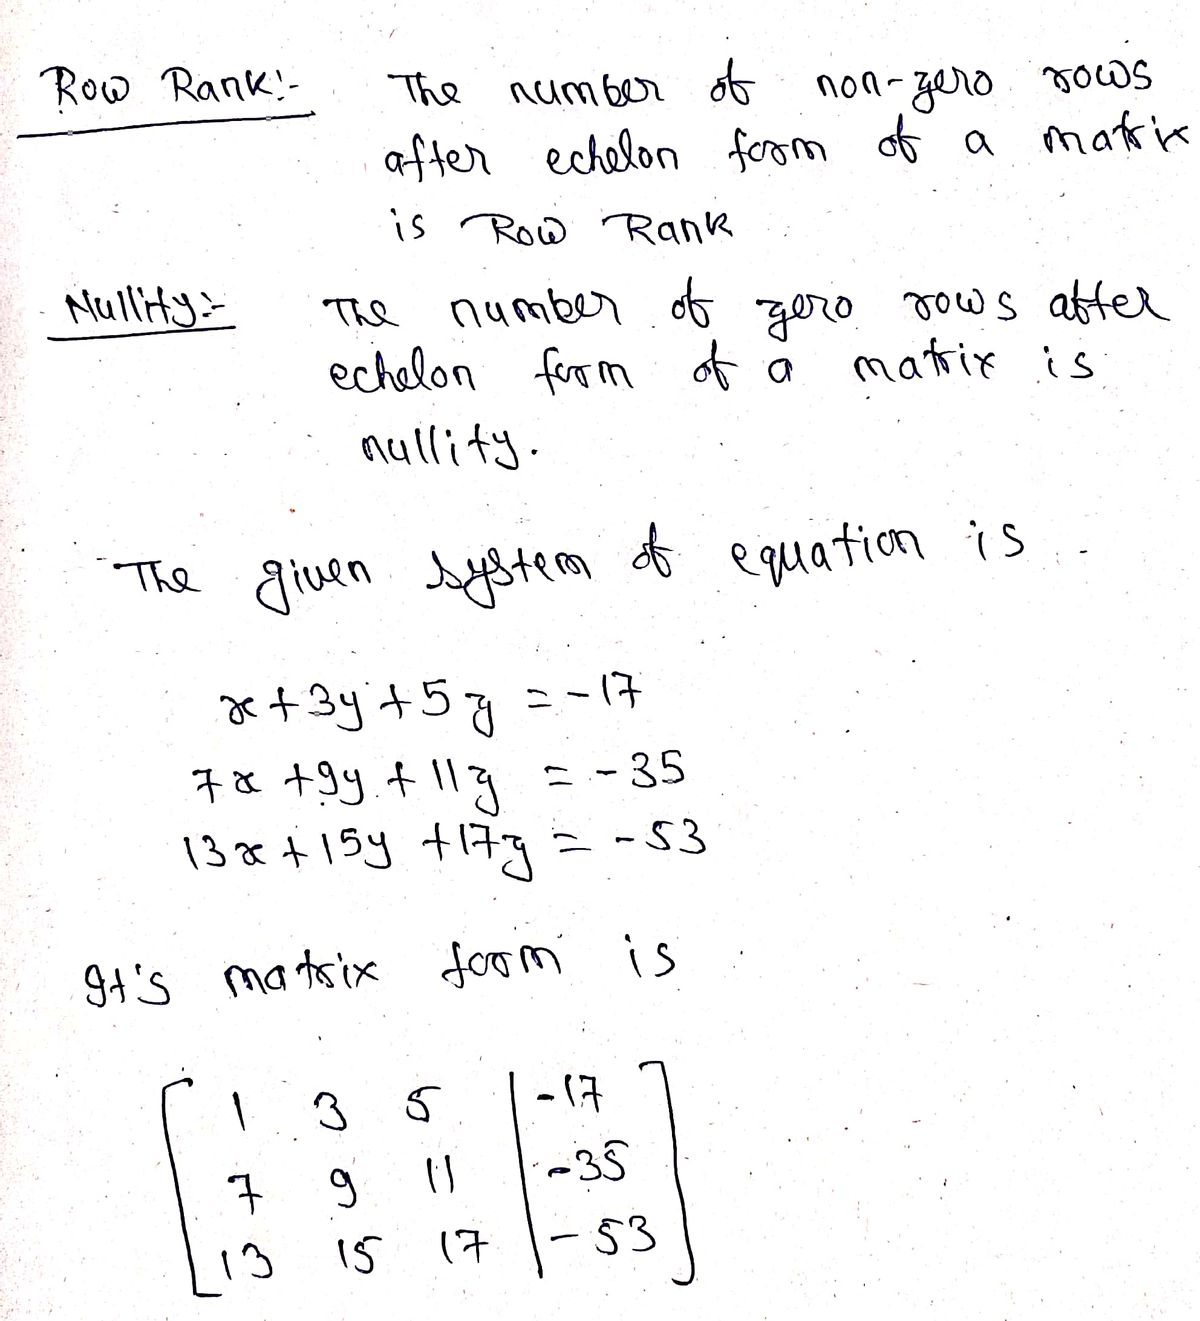 Row Rank:- The number of non-zero rows
after echelon form of a matrix
is Row Rank
Nullity:- The number of zero rows after
echelon form of a matrix is
nullity.
The given system of equation is
x+3y+5z = -17
7x +9y + 11z = -35
13x + 15y +17z = -53
It's matrix form is
1 3 5 | -17
7 9 11 | -35
13 15 17 | -53